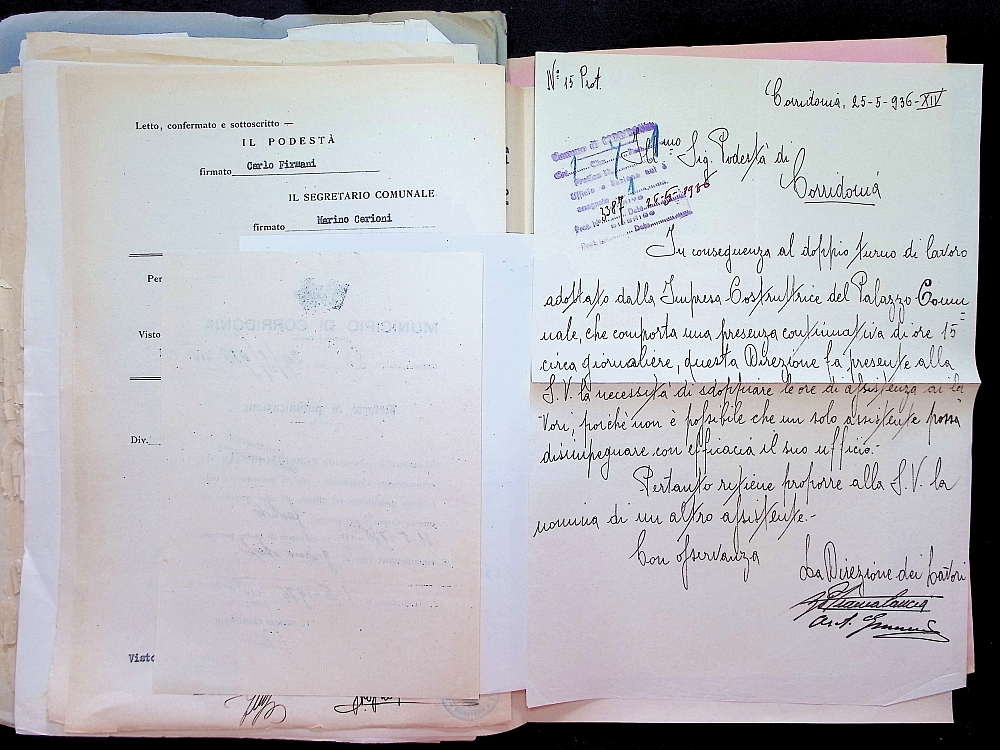 Letto, confermato e sottoscritto —
IL PODESTÀ
firmato Carlo Firmani
IL SEGRETARIO COMUNALE
firmato Marino Cerioni
Per
Visto
Div.
Visto
MUNICIPIO DI CORRIDONIA
N° 15 Prot.
Corridonia, 25-5-936-XIV
Ill.mo Sig. Podestà di
Corridonia
Comune di CORRIDONIA
Ufficio e Sezione cui è
3387
In conseguenza al doppio turno di lavoro
adottato dalla Impresa Costruttrice del Palazzo Comu
nale, che comporta una presenza continuativa di ore 15
circa giornaliere, questa Direzione fa presente alla
S.V. la necessità di sdoppiare le ore di assistenza ai la
vori, poichè non è possibile che un solo assistente possa
disimpegnare con efficacia il suo ufficio.-
Pertanto ritiene proporre alla S.V. la
nomina di un altro assistente.-
Con osservanza
La Direzione dei Lavori